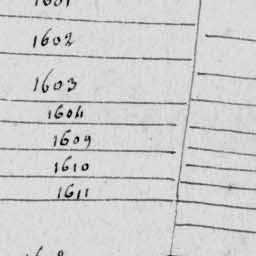 1601
1602
1603
1604
1609
1610
1611